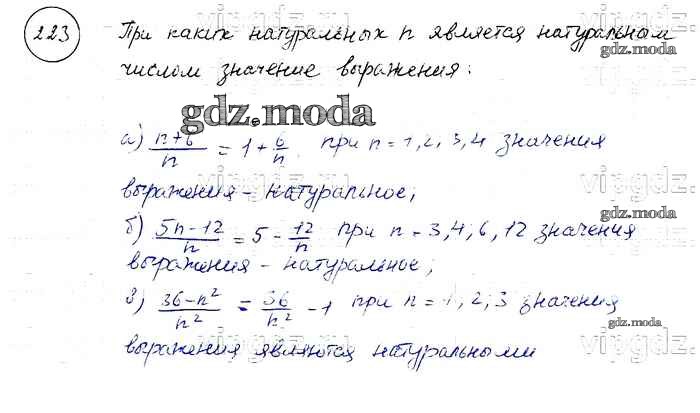 223 При каких натуральных n является натуральным
gdz.moda
числом значение выражения:
gdz.moda
а) (n+6)/n = 1 + 6/n при n = 1, 2, 3, 4 значения
выражения - натуральное;
gdz.moda
б) (5n-12)/n = 5 - 12/n при n = 3, 4, 6, 12 значения
выражения - натуральное;
в) (36-n²)/n² = 36/n² - 1 при n = 1, 2, 3 значения
gdz.moda
выражения являются натуральными